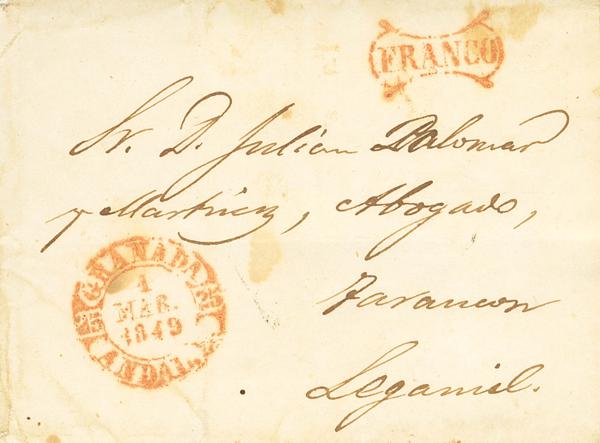 FRANCO
Sr. D. Julian Palomar
y Martinez, Abogado,
GRANADA
1
MAR.
1849
ANDAL.
Tarancon
Leganiel.